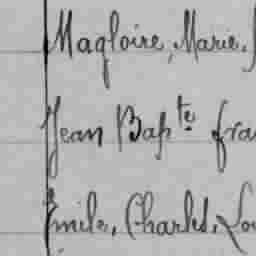 Magloire, Marie,
Jean Bap^te fra
Emile, Charles, Lou